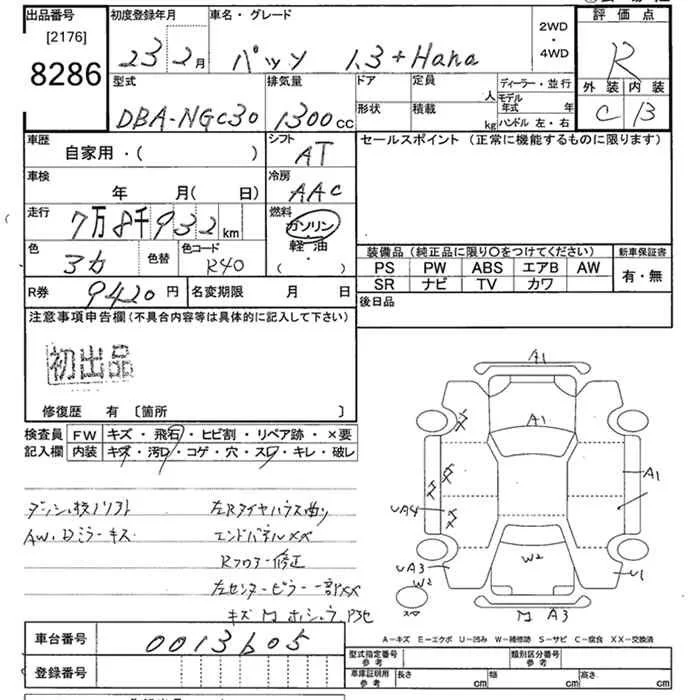 出品番号 初度登録年月 車名・グレード 2WD 評価点
[2176] 4WD
8286 23 2月 パッソ 1.3+Hana R
型式 排気量 ドア 定員 人 ディーラー・並行 外装 内装
DBA-NGC30 1300cc 形状 積載 kg モデル年式 年 C B
ハンドル 左・右
車歴 シフト セールスポイント (正常に機能するものに限ります)
自家用・( ) AT
車検 冷房
年 月( 日) AAC
走行 燃料
7万8千932km ガソリン・軽油・( )
色 色替 色コード 装備品(純正品に限り○をつけてください) 新車保証書
R40 PS PW ABS エアB AW 有・無
SR ナビ TV カワ
R券 9420円 名変期限 月 日 後日品
注意事項申告欄(不具合内容等は具体的に記入して下さい)
初出品
修復歴 有 〔箇所 〕
検査員 FW キズ・飛石・ヒビ割・リペア跡・×要
記入欄 内装 キズ・汚・コゲ・穴・スレ・キレ・破レ
A1
A1
A1
UA4
UA3
W2
W2
U1
A3
左Rタイヤハウス曲リ
AW、Dミラーキズ エンドパネルXX
Rフロアー修正
左センターピラー一部XX
車台番号 0013605
A-キズ E-エクボ U-凹み W-補修跡 S-サビ C-腐食 XX-交換済
登録番号
型式指定番号 参考 類別区分番号 参考
車庫証明用 参考 長さ cm 幅 cm 高さ cm